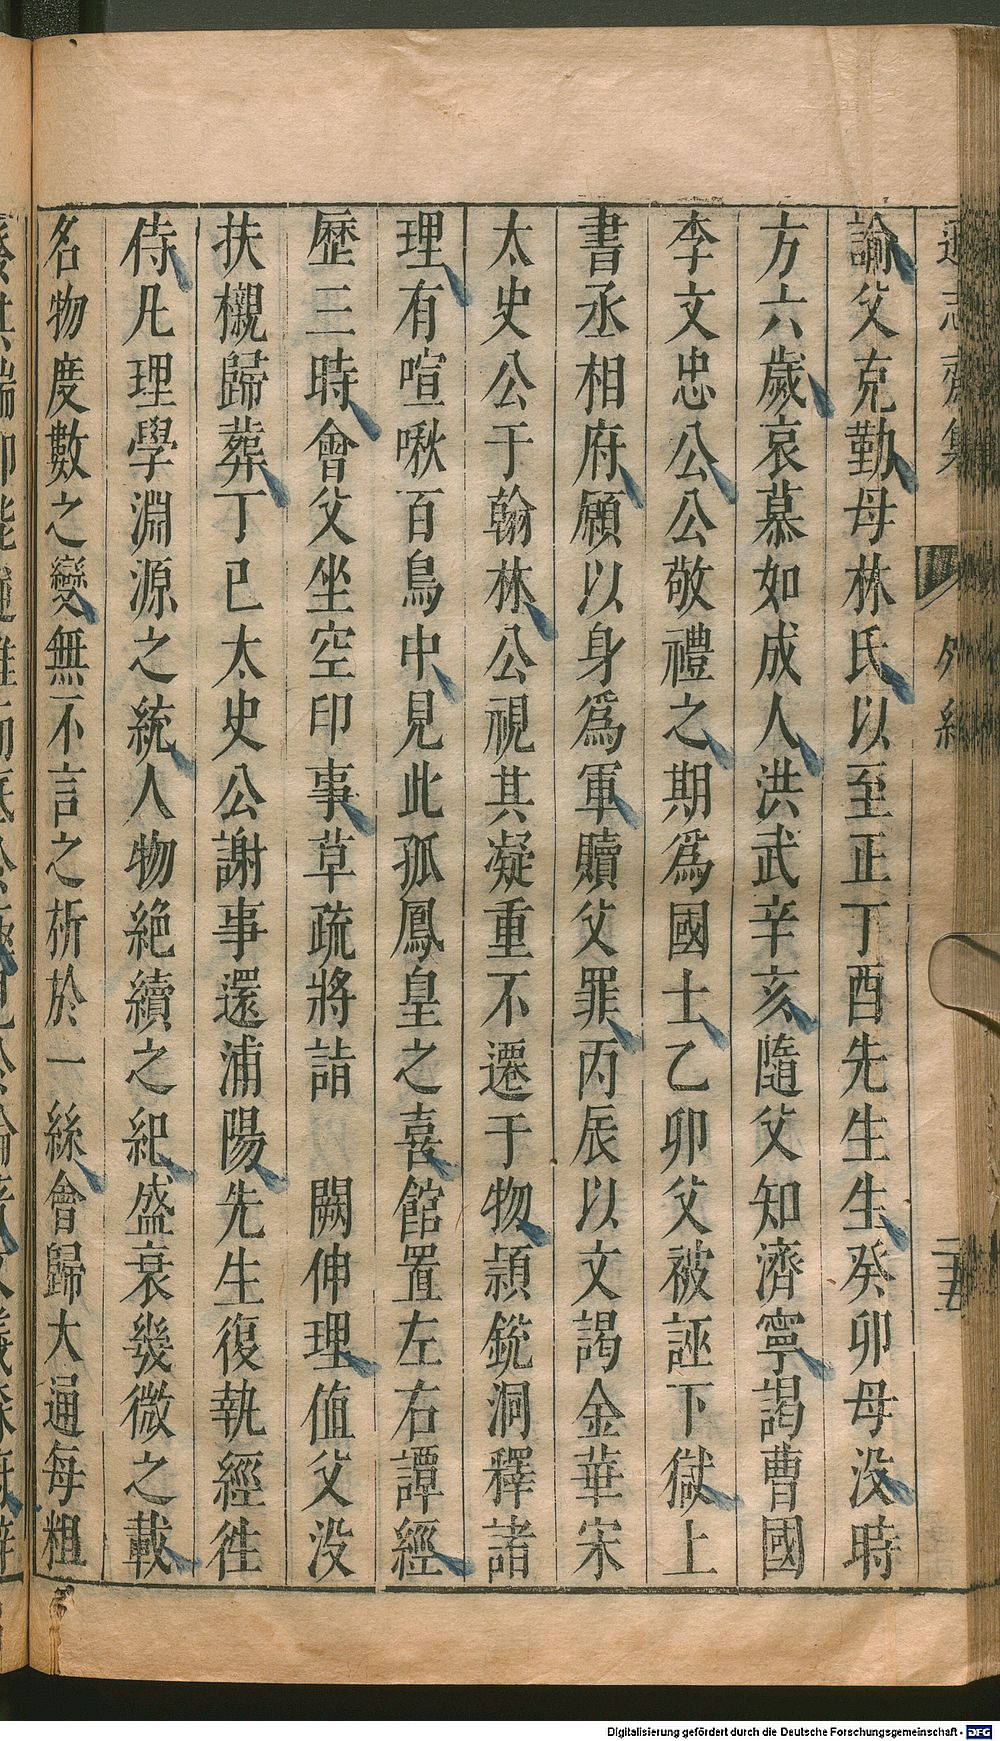 遜志齋集 外紀 二十五
諭父克勤母林氏以至正丁酉先生生癸卯母没時
方六歲哀慕如成人洪武辛亥隨父知濟寧謁曹國
李文忠公公敬禮之期爲國士乙卯父被誣下獄上
書丞相府願以身爲軍贖父罪丙辰以文謁金華宋
太史公于翰林公視其凝重不遷于物頴銳洞釋諸
理有喧啾百鳥中見此孤鳳皇之喜館置左右譚經
歷三時會父坐空印事草疏將詣 闕伸理值父没
扶櫬歸葬丁巳太史公謝事還浦陽先生復執經徃
侍凡理學淵源之統人物絶續之紀盛衰幾微之載
名物度數之變無不言之析於一絲會歸大通每粗
Digitalisierung gefördert durch die Deutsche Forschungsgemeinschaft - DFG